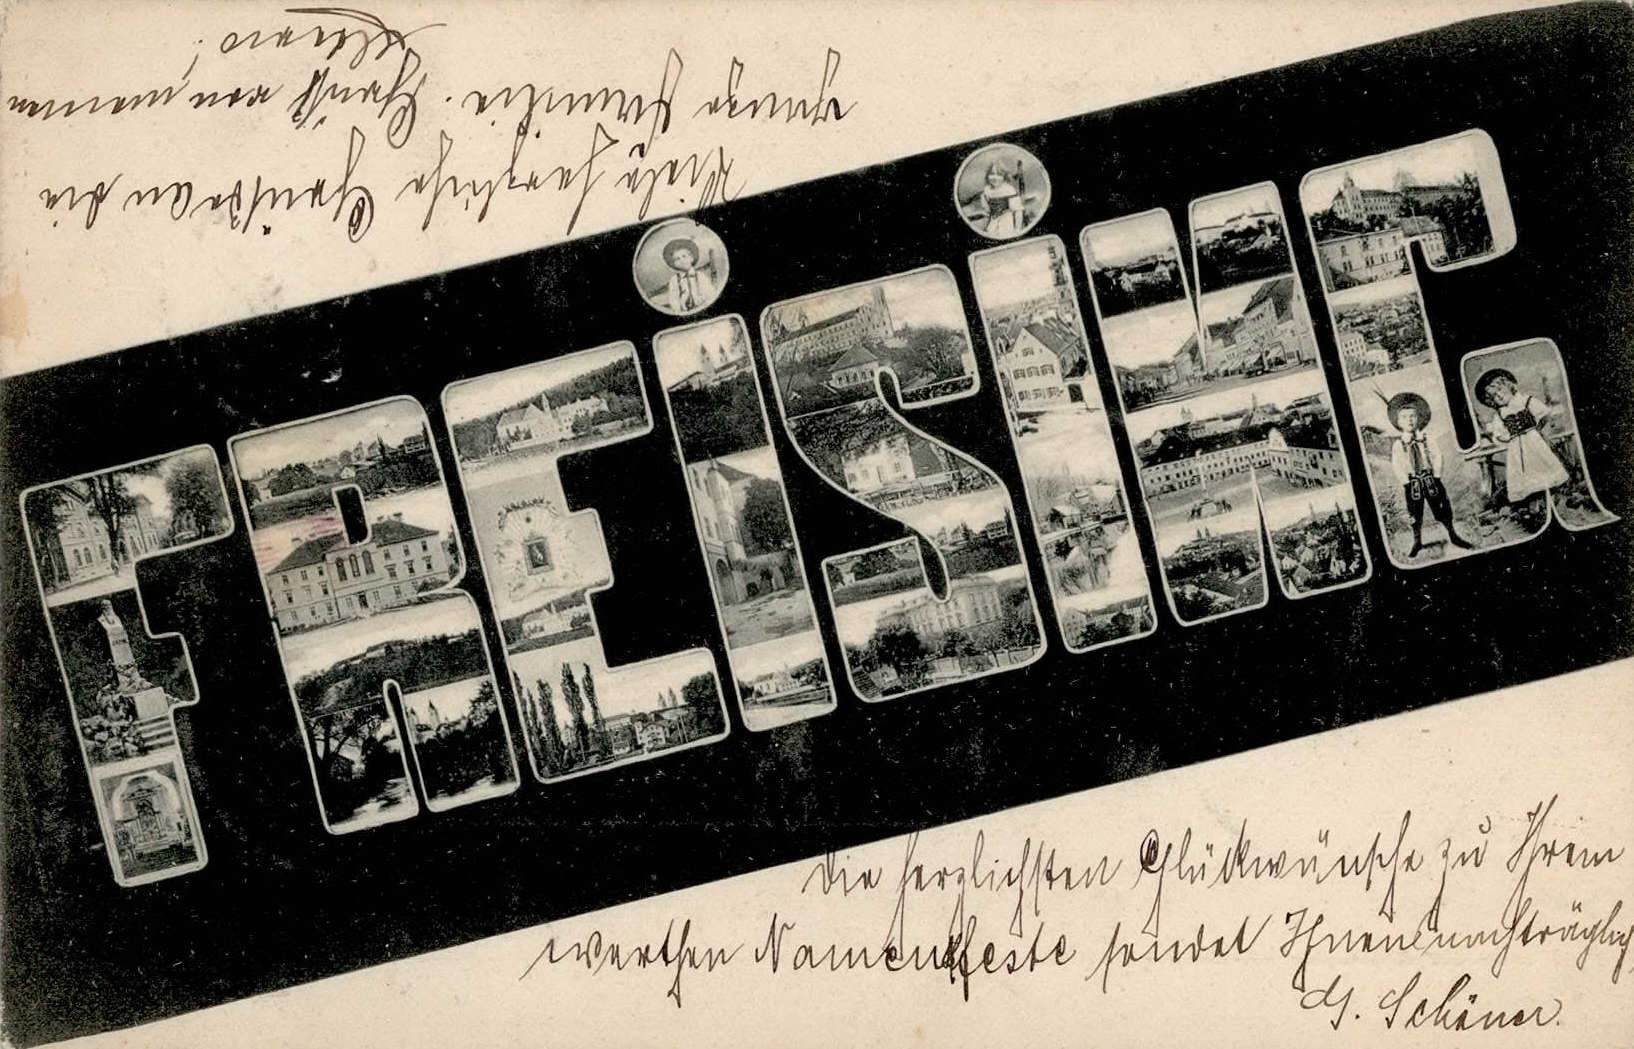 FREiSiNG
Die herzlichsten Glückwünsche zu Ihrem
werthen Namensfeste sendet Ihnen nachträglich
G. Schöner.
Viele herzliche Grüße an die
ganze Familie. Gruß von meinen